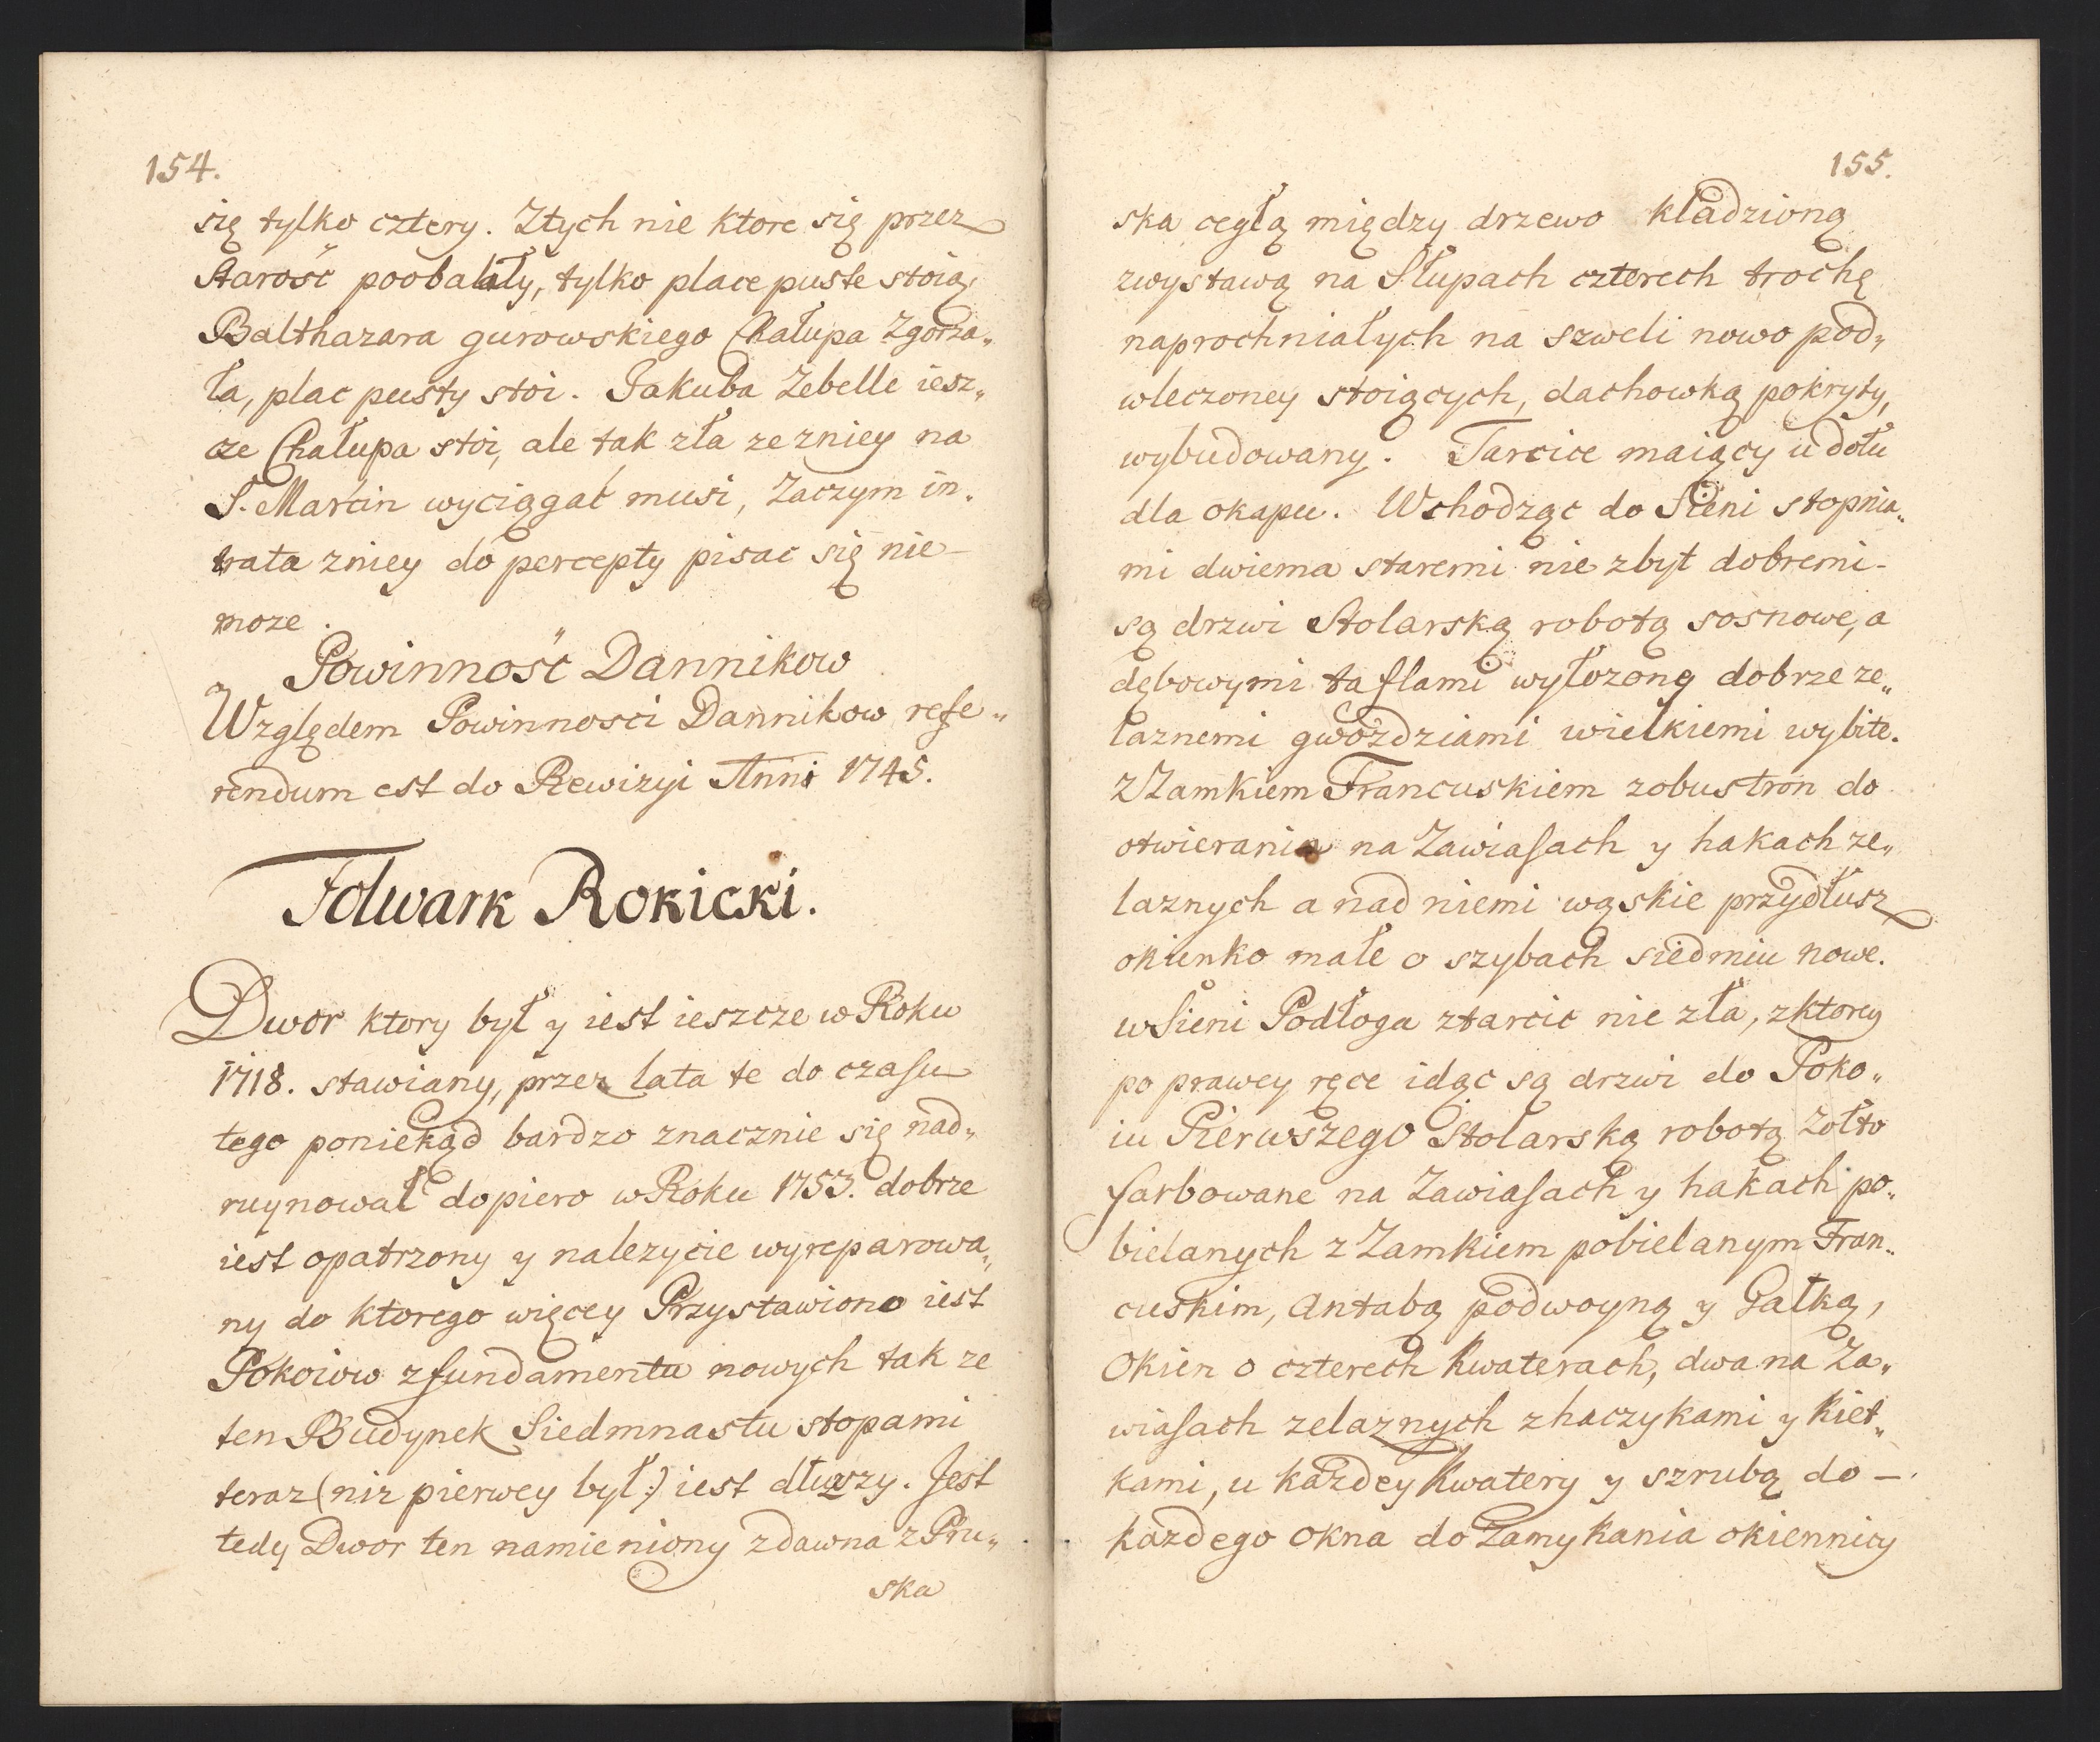 154.
się tylko cztery. Ztych nie ktore się przez
Starość poobalały, tylko place puste stoią,
Balthazara gurowskiego Chałupa Zgorza„
ła, plac pusty stoi. Jakuba Zebelle iesz„
cze Chałupa stoi, ale tak zła ze zniey na
S. Marcin wyciągać musi, Zaczym in„
trata zniey do percepty pisac się nie
moze.
Powinność Dannikow
Względem Powinnosci Dannikow refe„
rendum est do Rewizyi Anni 1745.
Folwark Rokicki.
Dwor ktory był y iest ieszcze w Roku
1718. stawiany, przez lata te do czasu
tego poniekąd bardzo znacznie się nad„
ruynował dopiero w Roku 1753. dobrze
iest opatrzony y nalezycie wyreparowa„
ny do ktorego więcey Przystawiono iest
Pokoiow z fundamentu nowych tak ze
ten Budynek Siedmnastu stopami
teraz (niz pierwey był:) iest dłuzszy. Jest
tedy Dwor ten namieniony zdawna z Pru„
ska
155.
ska cegłą między drzewo kładzioną
zwystawą na Słupach czterech trochę
naprochniałych na szweli nowo pod„
wleczoney stoiących, dachowką pokryty,
wybudowany. Tarcice maiący u dołu
dla okapu. Wchodząc do Sieni stopnia„
mi dwiema staremi nie zbyt dobremi
są drzwi Stolarską robotą sosnowe, a
dębowymi taflami wyłozone dobrze ze„
laznemi gwoździami wielkiemi wybite.
z Zamkiem Francuskiem zobustron do
otwierania na Zawiasach y hakach ze„
laznych a nad niemi wąskie przydłusz
okienko małe o szybach siedmiu nowe.
w Sieni Podłoga ztarcic nie zła, z ktorey
po prawey ręce idąc są drzwi do Poko„
iu Pierwszego Stolarską robotą Zołto
farbowane na Zawiasach y hakach po„
bielanych z Zamkiem pobielanym Fran„
cuskim, Antabą podwoyną y Gałką,
Okien o czterech kwaterach, dwa na Za„
wiasach zelaznych z haczykami y kiet„
kami, u kazdey kwatery y szrubą do
kazdego okna do Zamykania okiennicy